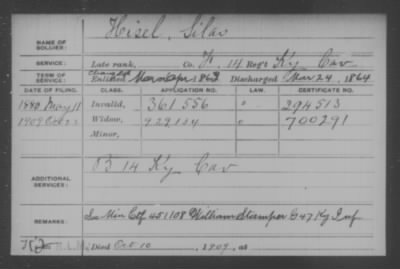 NAME OF SOLDIER: Hisel, Silas
SERVICE: Late rank, Co. F, 14 Reg't Ky Cav
TERM OF SERVICE: Enlisted 1863 Discharged Mar 24, 1864
DATE OF FILING. CLASS. APPLICATION NO. LAW. CERTIFICATE NO.
1880 May 11 Invalid, 361 556 " 294513
1909 Oct Widow, 929134 " 700291
Minor,
ADDITIONAL SERVICES: B 14 Ky Cav
REMARKS: Min Ctf 451108 William Stamper G 47 Ky Inf
Died Oct 10, 1909, at